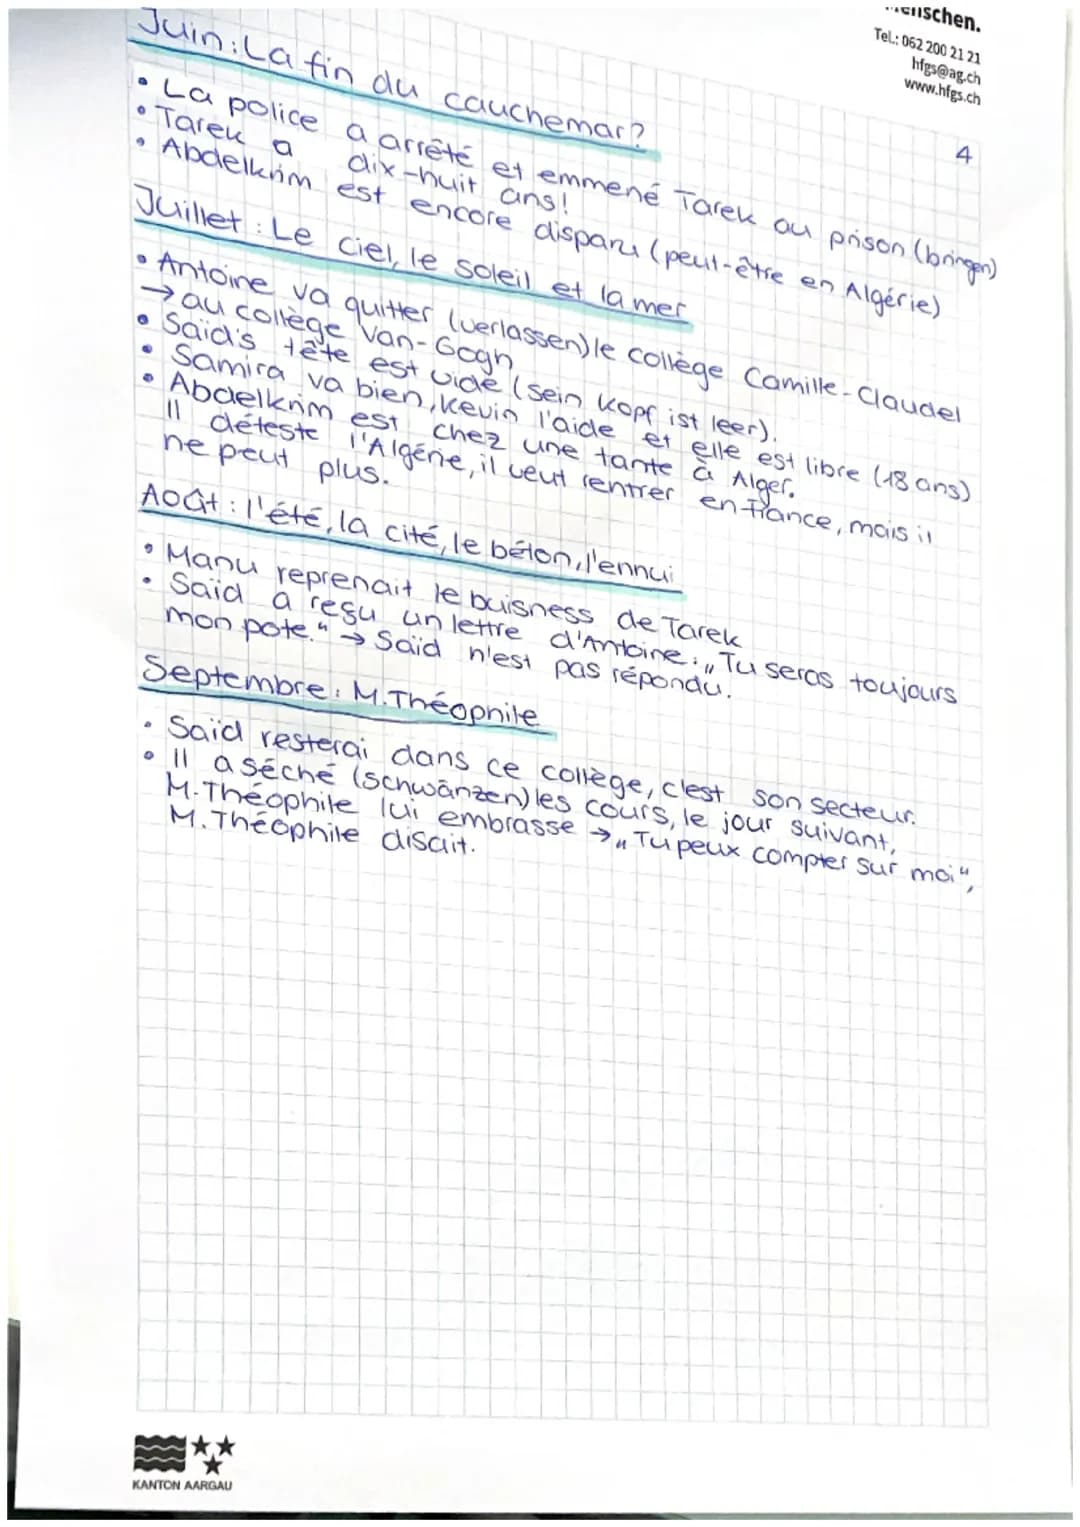 Menschen.
Tel.: 062 200 21 21
hfgs@ag.ch
www.hfgs.ch
4
Juin: La fin du cauchemar?
• La police a arrêté et emmené Tarek au prison (bringen)
• Tarek a dix-huit ans!
• Abdelkrim est encore disparu (peut-être en Algérie)
Juillet: Le ciel, le soleil et la mer
• Antoine va quitter (verlassen) le collège Camille-Claudel
→ au collège Van-Gogn
• Saïd's tête est vide (sein Kopf ist leer).
• Samira va bien, Kevin l'aide et elle est libre (18 ans)
• Abdelkrim est chez une tante à Alger.
Il déteste l'Algérie, il veut rentrer en France, mais il
ne peut plus.
Août: l'été, la cité, le béton, l'ennui
• Manu reprenait le buisness de Tarek
• Saïd a reçu un lettre d'Antoine: „Tu seras toujours
mon pote." → Saïd n'est pas répondu.
Septembre: M. Théophile
• Saïd resterai dans ce collège, c'est son secteur.
• Il a séché (schwänzen) les cours, le jour suivant,
M. Théophile lui embrasse → „Tu peux compter sur moi",
M. Théophile disait.
KANTON AARGAU